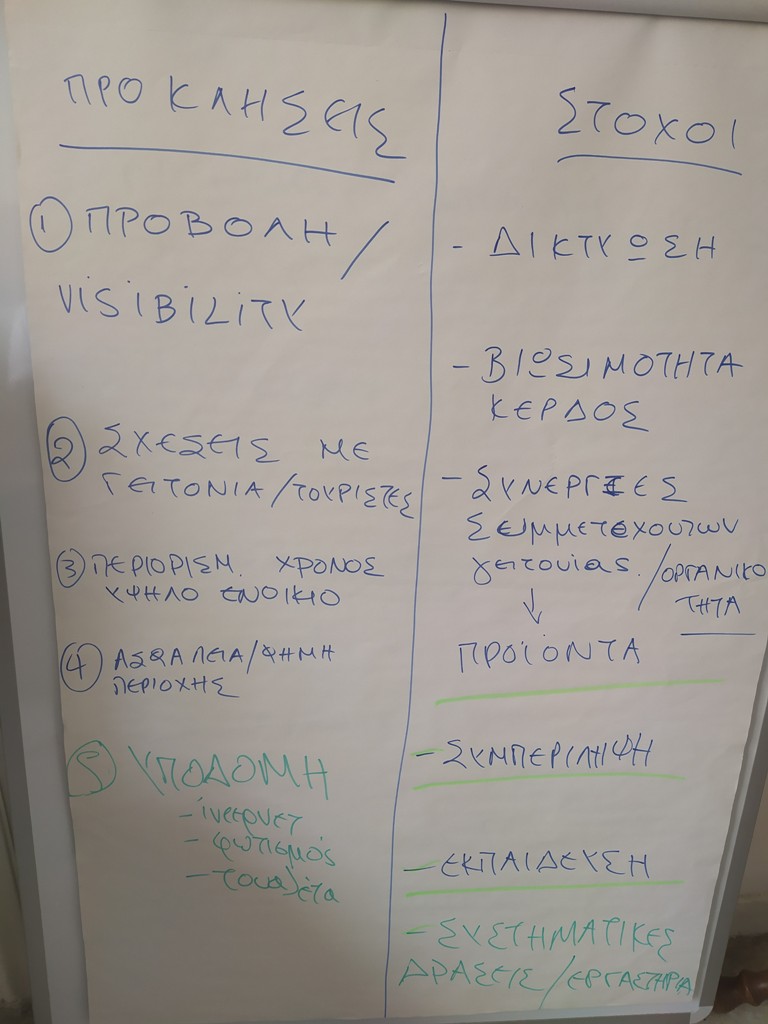 ΠΡΟΚΛΗΣΕΙΣ
① ΠΡΟΒΟΛΗ /
VISIBILITY
② ΣΧΕΣΕΙΣ ΜΕ
ΓΕΙΤΟΝΙΑ / ΤΟΥΡΙΣΤΕΣ
③ ΠΕΡΙΟΡΙΣΜ. ΧΡΟΝΟΣ
ΥΨΗΛΟ ΕΝΟΙΚΙΟ
④ ΑΣΦΑΛΕΙΑ/ΦΗΜΗ
ΠΕΡΙΟΧΗΣ
⑤ ΥΠΟΔΟΜΗ
- ίντερνετ
- φωτισμός
- τουαλέτα
ΣΤΟΧΟΙ
- ΔΙΚΤΥΩΣΗ
- ΒΙΩΣΙΜΟΤΗΤΑ
ΚΕΡΔΟΣ
- ΣΥΝΕΡΓΙΕΣ
Συμμετεχόντων
γειτονιάς. / ΟΡΓΑΝΙΚΟ
ΤΗΤΑ
↓
ΠΡΟΪΟΝΤΑ
- ΣΥΜΠΕΡΙΛΗΨΗ
- ΕΚΠΑΙΔΕΥΣΗ
- ΣΥΣΤΗΜΑΤΙΚΕΣ
ΔΡΑΣΕΙΣ / ΕΡΓΑΣΤΗΡΙΑ